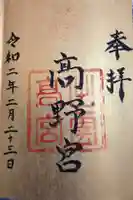 奉拝
高野宮
令和二年二月二十三日